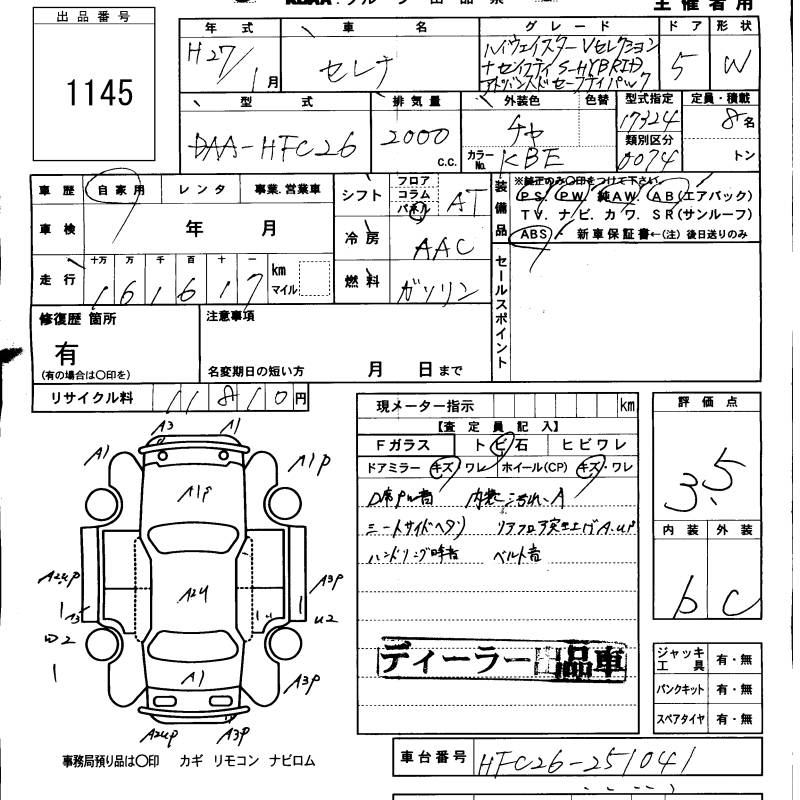 主催者用
出品番号
1145
年式 車名 グレード ドア 形状
H27/1月 セレナ ハイウェイスターVセレクション
ナセイフティ S-HYBRID
アドバンスドセーフティパック
5 W
型式 排気量 外装色 色替 型式指定 定員・積載
DAA-HFC26 2000 c.c. チャ 17324 8名
カラーNo. KBE 類別区分 0074 トン
車歴 自家用 レンタ 事業.営業車
シフト フロア コラム パネル AT
装備品 ※純正のみ○印をつけて下さい。
PS. PW. 純AW. AB(エアバック)
TV. ナビ. カワ. SR(サンルーフ)
ABS 新車保証書←(注) 後日送りのみ
車検 年 月
冷房 AAC
走行 十万 万 千 百 十 一
161617 km マイル
燃料 ガソリン
セールスポイント
修復歴 箇所
有
(有の場合は○印を)
注意事項
名変期日の短い方 月 日まで
リサイクル料 11810円
現メーター指示 km
【査定員記入】
Fガラス トビ石 ヒビワレ
ドアミラー キズ・ワレ ホイール(CP) キズ・ワレ
D席PW者 内装ヨゴれ、A
シートサイドヘタリ リアフロア突き上げA.UP
ハンドリング時音 ベルト音
ディーラー出品車
評価点
3.5
内装 外装
b C
A3 A1
A1 A1P
A1P
A2UP A3P
A2U
A3P
A1
A2UP A3P
ジャッキ 工具 有・無
パンクキット 有・無
スペアタイヤ 有・無
事務局預り品は○印 カギ リモコン ナビロム
車台番号 HFC26-251041